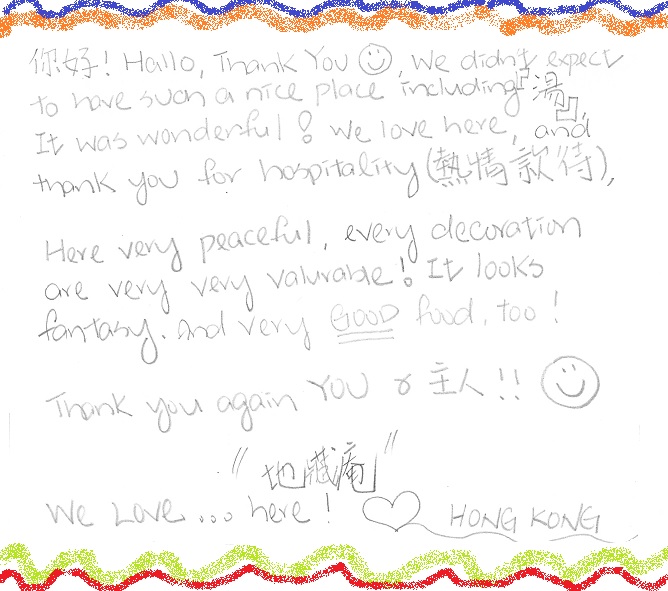 你好! Hallo, Thank You ☺, We didn't expect
to have such a nice place including『湯』,
It was wonderful! We love here, and
thank you for hospitality (熱情款待),
Here very peaceful, every decoration
are very very valurable! It looks
fantasy. And very GOOD food, too!
Thank you again YOU 主人!! ☺
"地藏庵"
We Love... here! ♡ HONG KONG